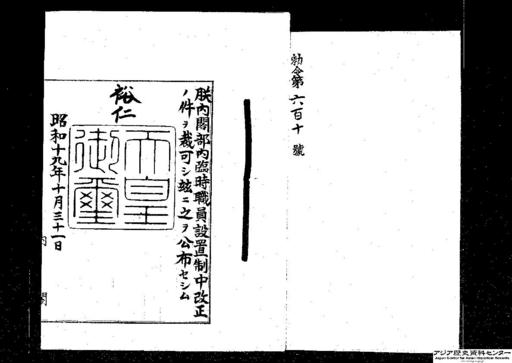 勅令第六百十號
朕內閣部內臨時職員設置制中改正
ノ件ヲ裁可シ玆ニ之ヲ公布セシム
裕仁
天皇御璽
昭和十九年十月三十一日
內閣
アジア歴史資料センター
Japan Center for Asian Historical Records